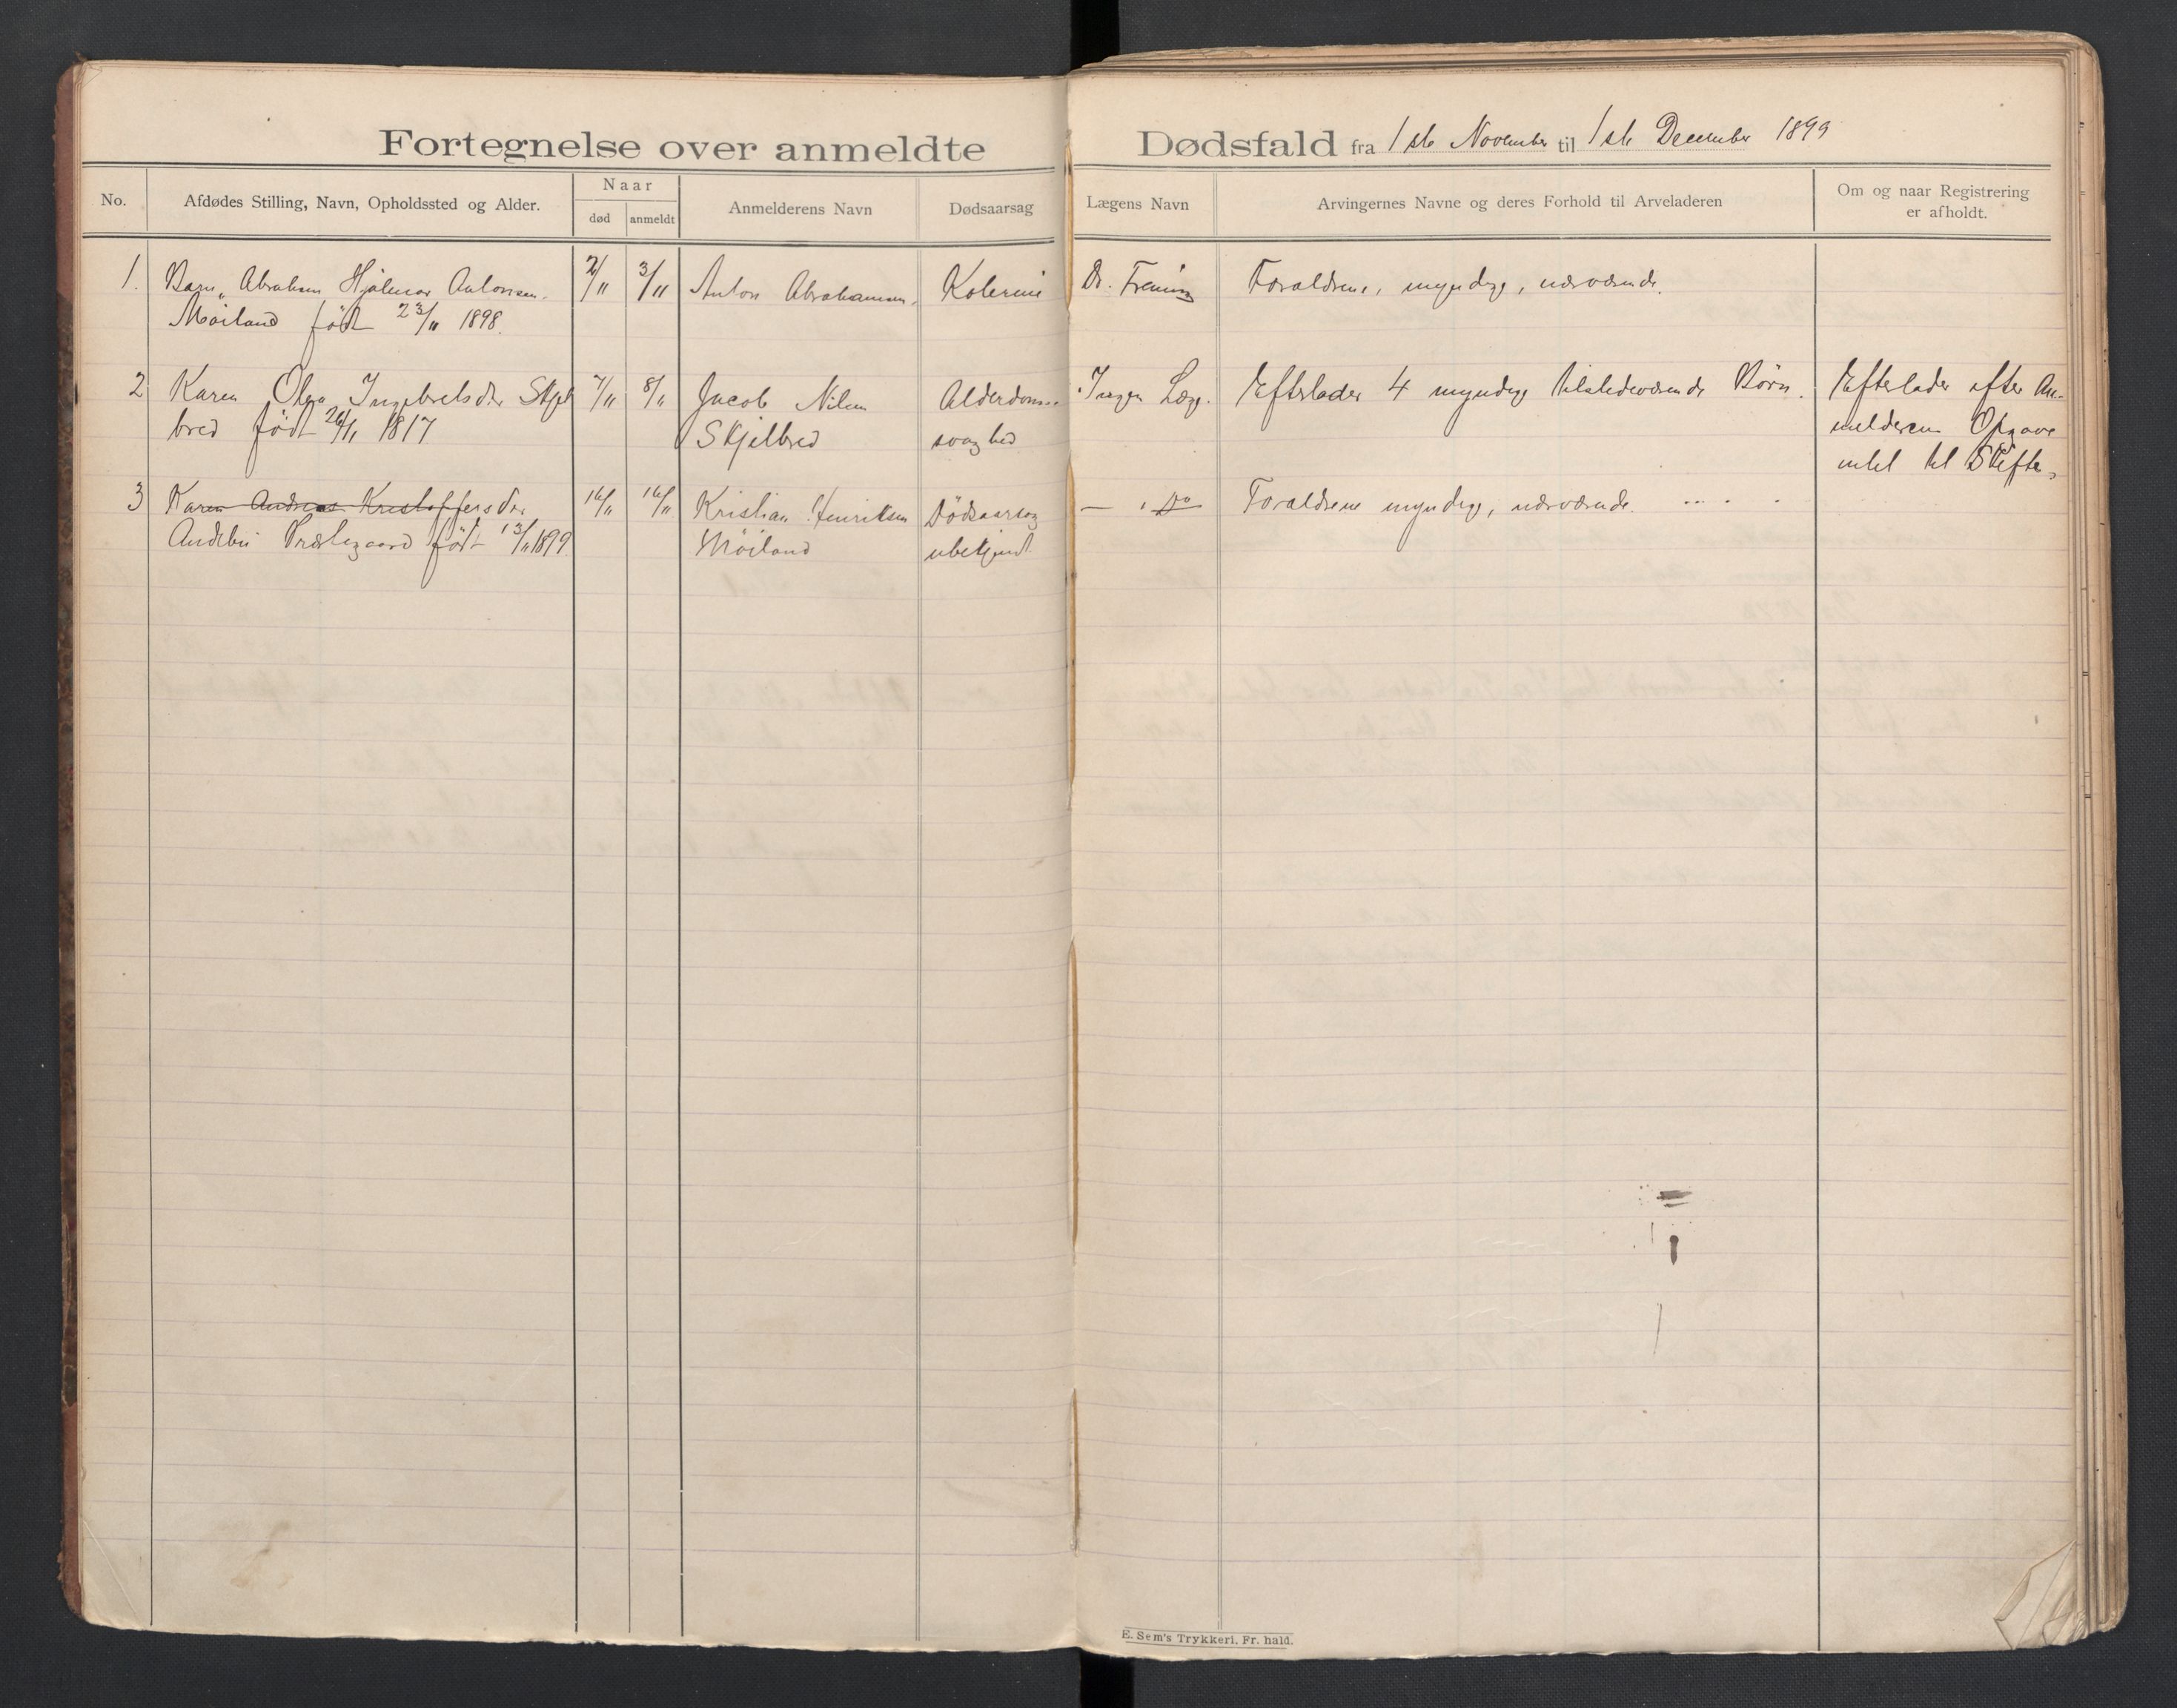 Fortegnelse over anmeldte Dødsfald fra 1ste November til 1ste December 1899
No. Afdødes Stilling, Navn, Opholdssted og Alder. Naar død anmeldt Anmelderens Navn Dødsaarsag Lægens Navn Arvingernes Navne og deres Forhold til Arveladeren Om og naar Registrering er afholdt.
1. Barn, Abraham Hjalmar Antonsen. 2/11 3/11 Anton Abrahamsen. Kolerine Dr. Forældrene, myndige, nærværende.
Møiland født 23/11 1898.
2 Karen Olga Ingebretsdr Skjel 7/11 8/11 Jacob Nilsen Alderdoms- Ingen Læge. Efterlader 4 myndige tilstedeværende Børn. Efterlader efter An-
bred født 1817 Skjelbred svaghed melderens Opgave
intet til Skifte.
3 Karen Andreas Kristoffersdr 16/11 16/11 Kristian Henriksen Dødsaarsag — " Do Forældrene myndige, nærværende.
Andebu Præstegaard født 13/11 1899. Møiland ubekjendt
E. Sem's Trykkeri, Fr. hald.